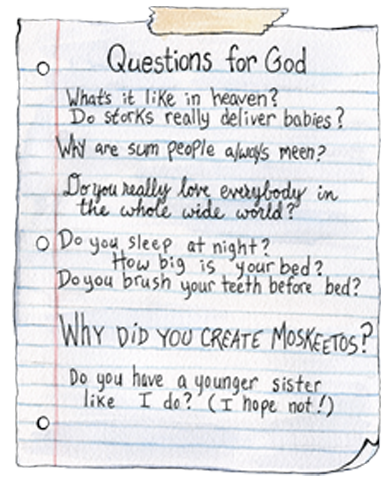 Questions for God
What's it like in heaven?
Do storks really deliver babies?
Why are sum people always meen?
Do you really love everybody in
the whole wide world?
Do you sleep at night?
How big is your bed?
Do you brush your teeth before bed?
WHY DID YOU CREATE MOSKEETOS?
Do you have a younger sister
like I do? (I hope not!)